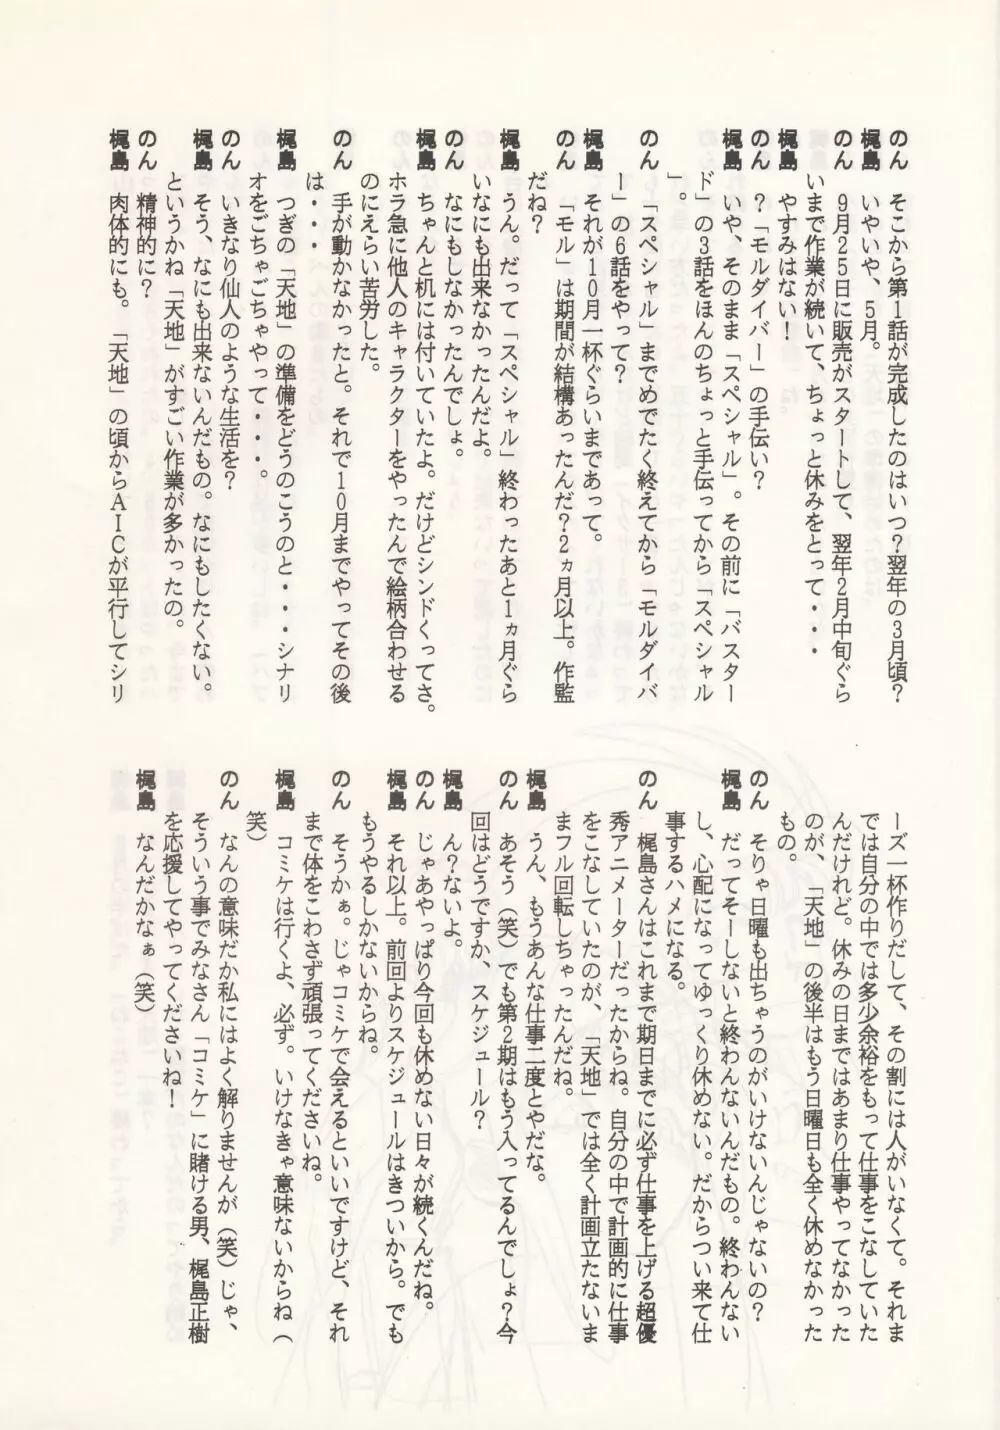 のん　そこから第1話が完成したのはいつ？翌年の3月頃？
梶島　いやいや、5月。
のん　9月25日に販売がスタートして、翌年2月中旬ぐら
いまで作業が続いて、ちょっと休みをとって・・・
梶島　やすみはない！
のん　？「モルダイバー」の手伝い？
梶島　いや、そのまま「スペシャル」。その前に「バスター
ド」の3話をほんのちょっと手伝ってから「スペシャル
」。
のん　「スペシャル」までめでたく終えてから「モルダイバ
ー」の6話をやって？
梶島　それが10月一杯ぐらいまであって。
のん　「モル」は期間が結構あったんだ？2ヵ月以上。作監
だね？
梶島　うん。だって「スペシャル」終わったあと1ヵ月ぐら
いなにも出来なかったんだよ。
のん　なにもしなかったんでしょ。
梶島　ちゃんと机には付いていたよ。だけどシンドくってさ。
ホラ急に他人のキャラクターをやったんで絵柄合わせる
のにえらい苦労した。
のん　手が動かなかったと。それで10月までやってその後
は・・・
梶島　つぎの「天地」の準備をどうのこうのと・・・シナリ
オをごちゃごちゃやって・・・。
のん　いきなり仙人のような生活を？
梶島　そう、なにも出来ないんだもの。なにもしたくない。
というかね「天地」がすごい作業が多かったの。
のん　精神的に？
梶島　肉体的にも。「天地」の頃からAICが平行してシリ
ーズ一杯作りだして、その割には人がいなくて。それま
では自分の中では多少余裕をもって仕事をこなしていた
んだけれど。休みの日まではあまり仕事やってなかった
のが、「天地」の後半はもう日曜日も全く休めなかった
もの。
のん　そりゃ日曜も出ちゃうのがいけないんじゃないの？
梶島　だってそーしないと終わんないんだもの。終わんない
し、心配になってゆっくり休めない。だからつい来て仕
事するハメになる。
のん　梶島さんはこれまで期日までに必ず仕事を上げる超優
秀アニメーターだったからね。自分の中で計画的に仕事
をこなしていたのが、「天地」では全く計画立たないま
まフル回転しちゃったんだね。
梶島　うん、もうあんな仕事二度とやだな。
のん　あそう（笑）でも第2期はもう入ってるんでしょ？今
回はどうですか、スケジュール？
梶島　ん？ないよ。
のん　じゃあやっぱり今回も休めない日々が続くんだね。
梶島　それ以上。前回よりスケジュールはきついから。でも
もうやるしかないからね。
のん　そうかぁ。じゃコミケで会えるといいですけど、それ
まで体をこわさず頑張ってくださいね。
梶島　コミケは行くよ、必ず。いけなきゃ意味ないからね（
笑）
のん　なんの意味だか私にはよく解りませんが（笑）じゃ、
そういう事でみなさん「コミケ」に賭ける男、梶島正樹
を応援してやってくださいね！
梶島　なんだかなぁ（笑）